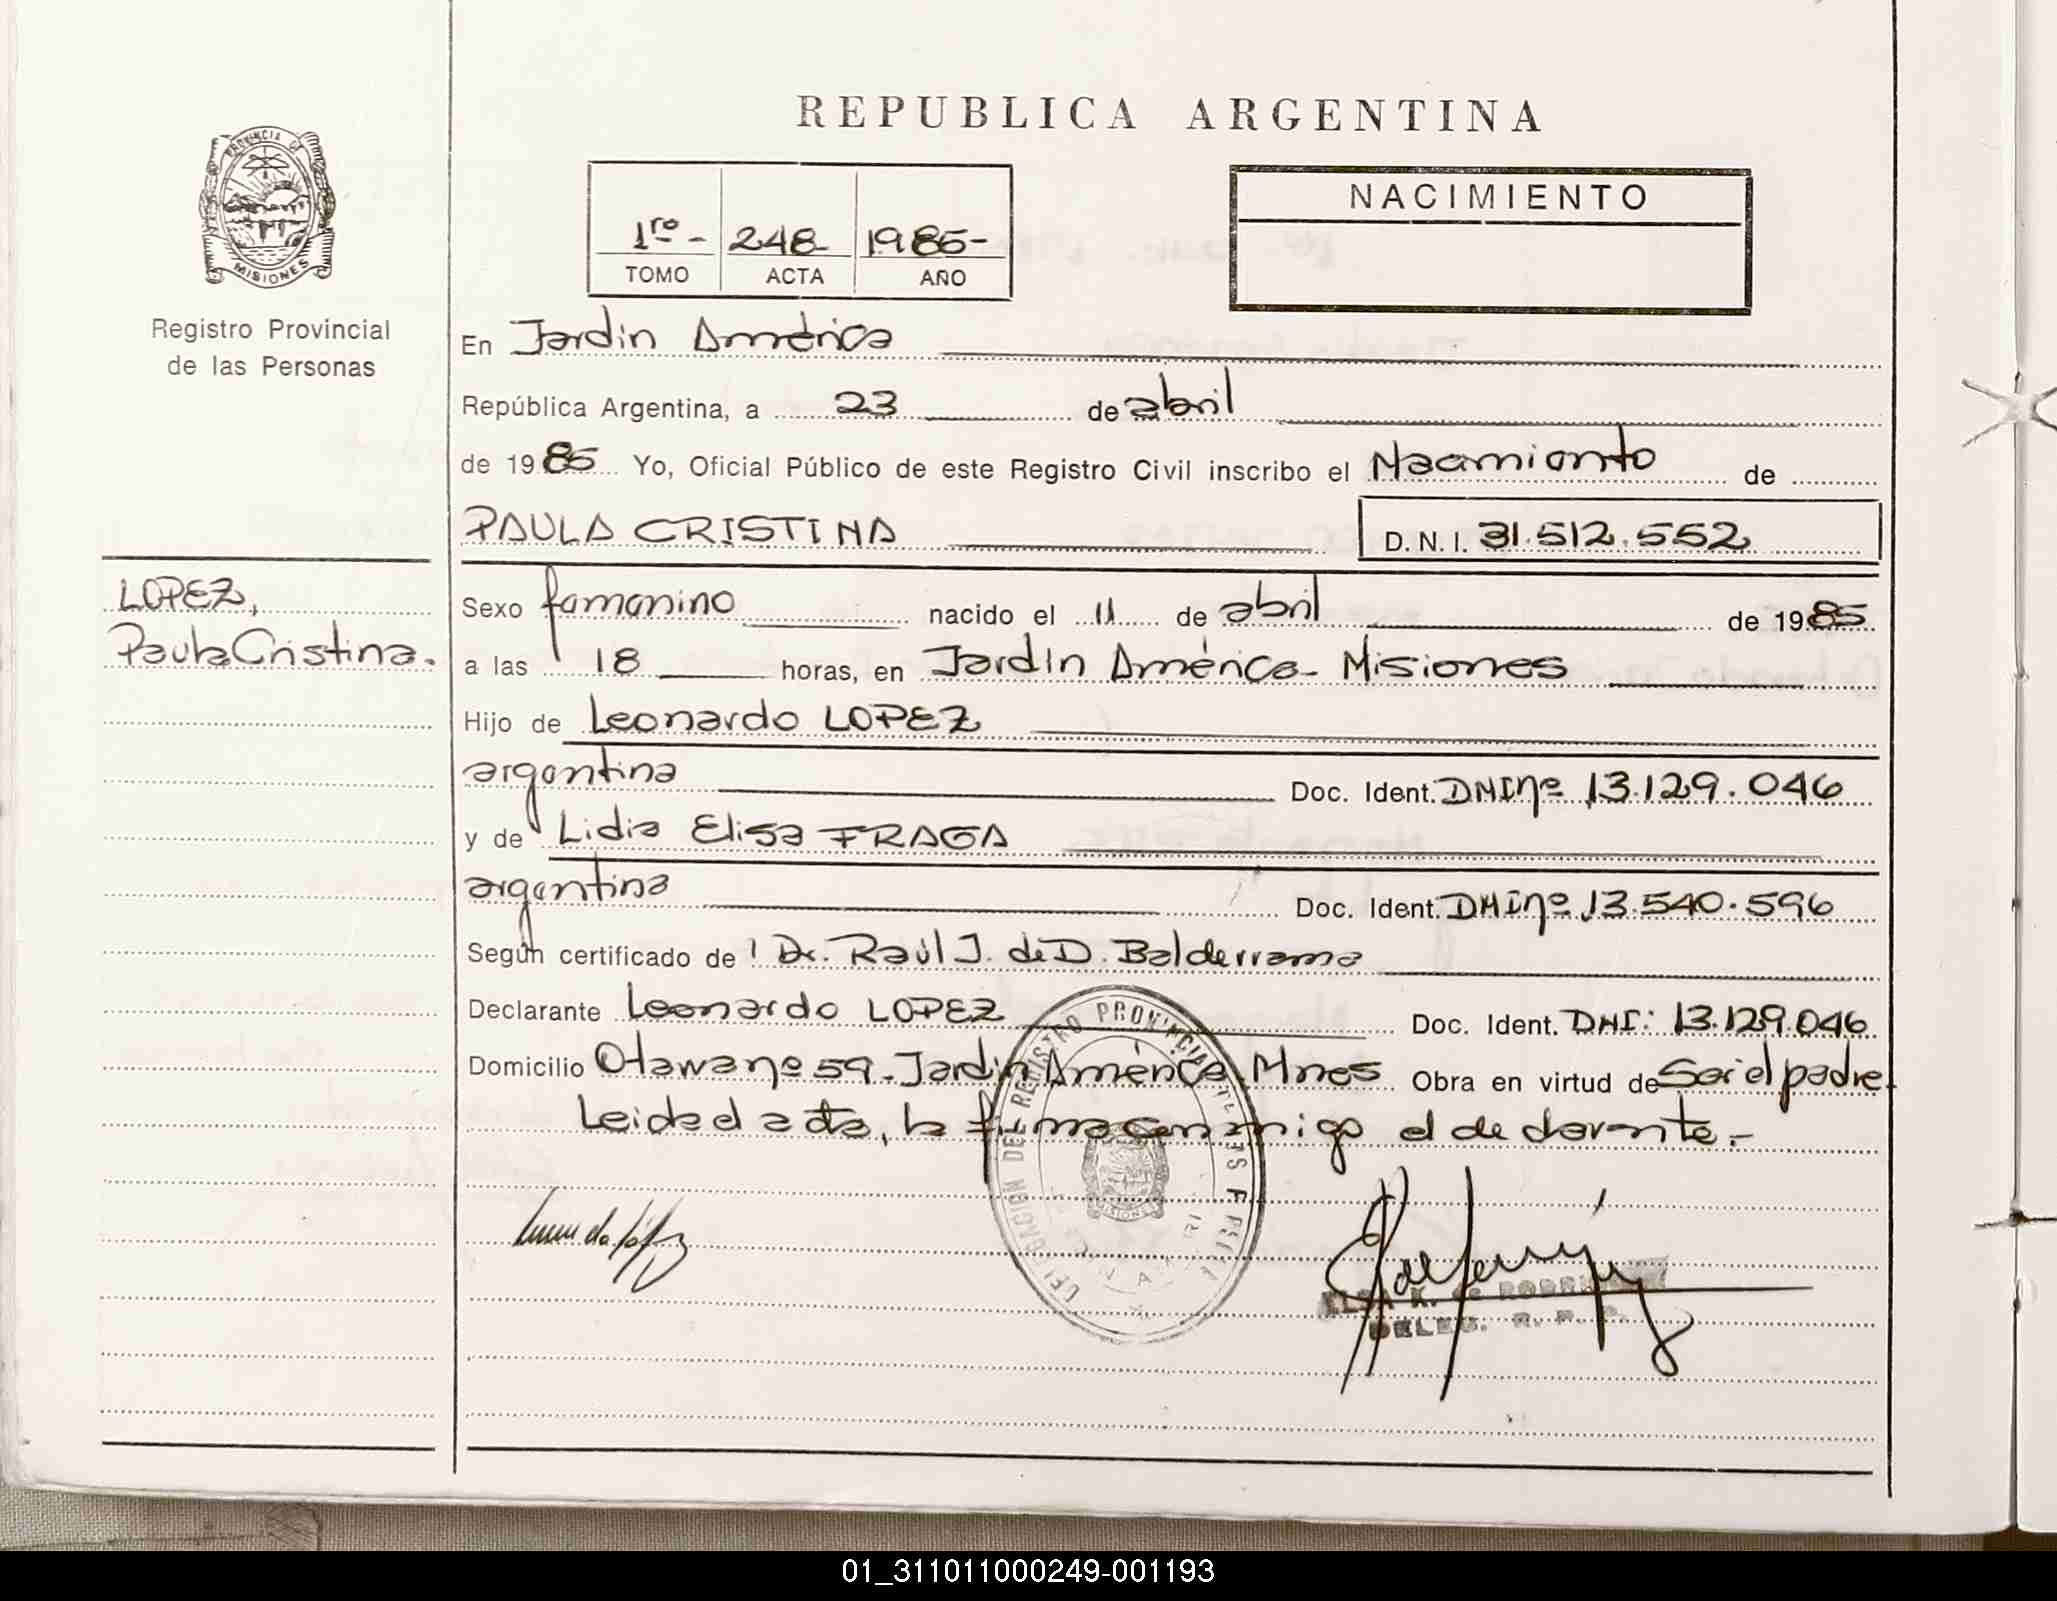 REPUBLICA ARGENTINA
PROVINCIA DE
MISIONES
Registro Provincial
de las Personas
1ro- 248- 1985-
TOMO ACTA AÑO
NACIMIENTO
En Jardín América
República Argentina, a 23 de abril
de 1985 Yo, Oficial Público de este Registro Civil inscribo el Nacimiento de
PAULA CRISTINA D. N. I. 31.512.552
LOPEZ,
Paula Cristina.
Sexo femenino nacido el 11 de abril de 1985
a las 18 horas, en Jardín América- Misiones
Hijo de Leonardo LOPEZ
argentina Doc. Ident. DNI nº 13.129.046
y de Lidia Elisa FRAGA
argentina Doc. Ident. DNI nº 13.540.596
Según certificado de Dr. Raúl J. de D. Balderrama
Declarante Leonardo LOPEZ Doc. Ident. DNI: 13.129.046
Domicilio Otawa nº 59- Jardín América Mnes Obra en virtud de Ser el padre.
Leida el acta, la firma conmigo el declarante.-
DELEGACION DEL REGISTRO PROVINCIAL DE LAS PERS
MISIONES
ELSA K. de RODRI
DELEG. R. P. P.
01_311011000249-001193